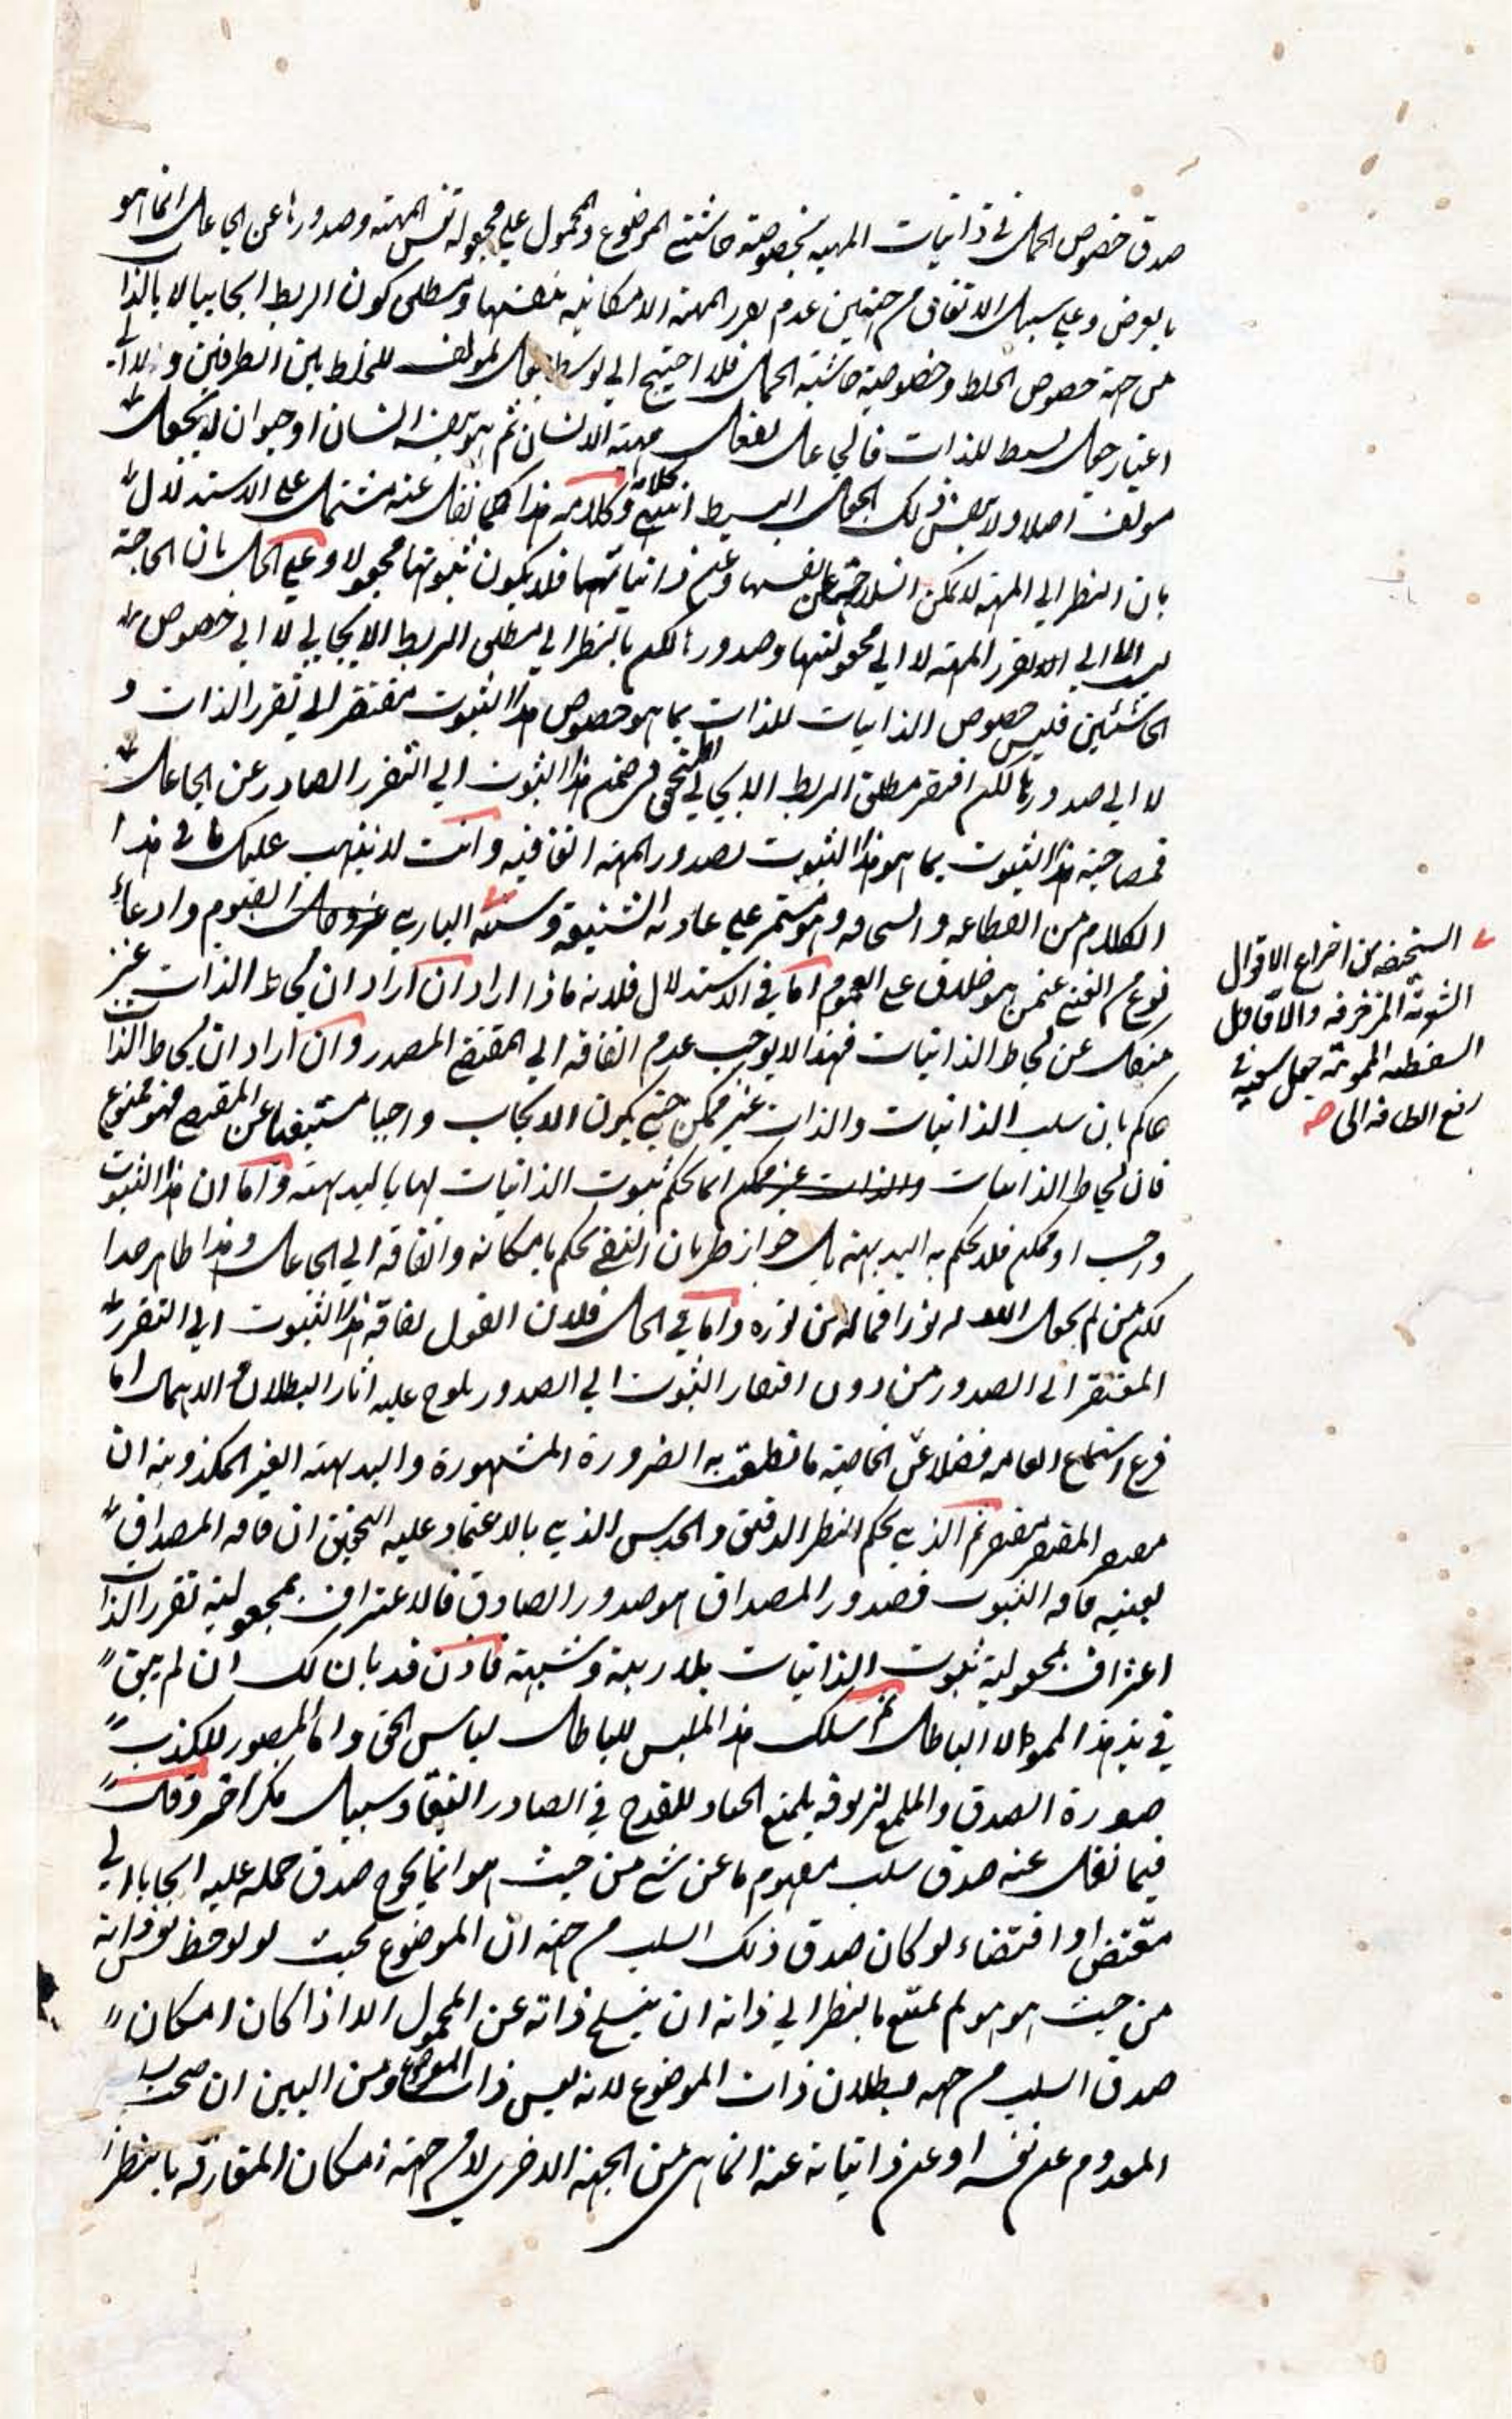 صدق خصوص الحمل في ذاتيات المهية بخصوصية حاشيتي الموضوع والمحمول على مجعولية نفس المهية وصدورها عن الجاعل انما هو
بالعرض وعلى سبيل الاتفاق من جهتين عدم تقرر المهية الامكانية بنفسها ومطلق كون الربط ايجابيا لا بالذات
من جهة خصوص الخلط وخصوصية حاشية الحمل فلا احتيج الى توسط جعل مؤلف للخلط بين الطرفين ولا الى
اعتبار جعل بسيط للذات فالجاعل يفعل مهية الانسان ثم هو بنفسه انسان او حيوان لا بجعل
مؤلف اصلا ولا بنفس ذلك الجعل البسيط انتهى كلامه وكلامه هذا كما نقل عنه مشتمل على الاستدلال
بان النظر الى المهية لا يمكن انسلاخها عن نفسها وعن ذاتياتها فلا يكون ثبوتها مجعولا وعلى الحل بان الحاجة
الى تقرر المهية لا الى مجعوليتها وصدورها لكن بالنظر الى مطلق الربط الايجابي لا الى خصوص
الحاشيتين فليس خصوص الذاتيات للذات بما هو خصوص هذا الثبوت مفتقر الى تقرر الذات و
لا الى صدورها لكن افتقر مطلق الربط الايجابي المتحقق في ضمن هذا الثبوت الى التقرر الصادر عن الجاعل
فمصاحبة هذا الثبوت بما هو هذا الثبوت لصدور المهية اتفاقية وانت لا يذهب عليك ما في هذا
الكلام من الفظاعة والسخافة وهو مستمر على عادته الشنيعة وسنته وادعاء
نوع من الغنى عمن هو خلاق على العموم اما في الاستدلال فلانه ماذا اراد ان اراد ان لحاظ الذات غير
منفك عن لحاظ الذاتيات فهذا لا يوجب عدم الفاقة الى المقتضي المصدر وان اراد ان لحاظ الذات
حاكم بان سلب الذاتيات والذات غير ممكن حتى يكون الايجاب واجبا مستغنيا عن المقتضي فهو ممنوع
فان لحاظ الذاتيات والذات غير ممكن انما يحكم بثبوت الذاتيات لها بالبديهة واما ان هذا الثبوت
واجب او ممكن فلا يحكم به البديهة بل جواز طريان النفي يحكم بامكانه والفاقة الى الجاعل وهذا ظاهر جدا
لكن من لم يجعل الله له نورا فما له من نوره واما في الحل فلان القول بفاقة هذا الثبوت الى التقرر
المفتقر الى الصدور من دون افتقار الثبوت الى الصدور يلوح عليه اثار البطلان والاهمال اما
قرع استماع العامة فضلا عن الخاصة ما تنطق به الضرورة المشهورة والبديهة الغير المكذوبة ان
مفتقر المفتقر مفتقر ثم الذي يحكم النظر الدقيق والحدس الذي بالاعتماد عليه ان فاقة المصداق
بعينه فاقة الثبوت فصدور المصداق هو صدور الصادق فالاعتراف بمجعولية تقرر الذات
اعتراف بمجعولية ثبوت الذاتيات بلا ريبة وشبهة فاذن قد بان لك ان لم يبق
في يد هذا المموه الا الباطل ثم اسلك هذا الملبس للباطل لباس الحق والمصور للكذب
صورة الصدق والملمع للقدح في الصادر سبيل مكر اخر وقال
فيما نقل عنه صدق سلب مفهوم ما عن شيء من حيث هو انما يحوج صدق حمله عليه ايجابا الى
مقتض او اقتضاء لو كان صدق ذلك السلب من جهة ان الموضوع بحيث لو لوحظ نفس ذاته
من حيث هو هو لم يمتنع بالنظر الى ذاته ان ينسلخ ذاته عن المحمول الا اذا كان امكان
صدق السلب من جهة بطلان ذات الموضوع لانه ليس ذات الموضوع ومن البين ان صحة سلب
المعدوم عن نفسه او عن ذاتياته عنه انما هي من الجهة الاخرى لا من جهة امكان المفارقة بالنظر
السخيفة من اختراع الاقوال
المزخرفة والاقاويل
المموهة جعل سعيه في
رفع الطافة الى صح